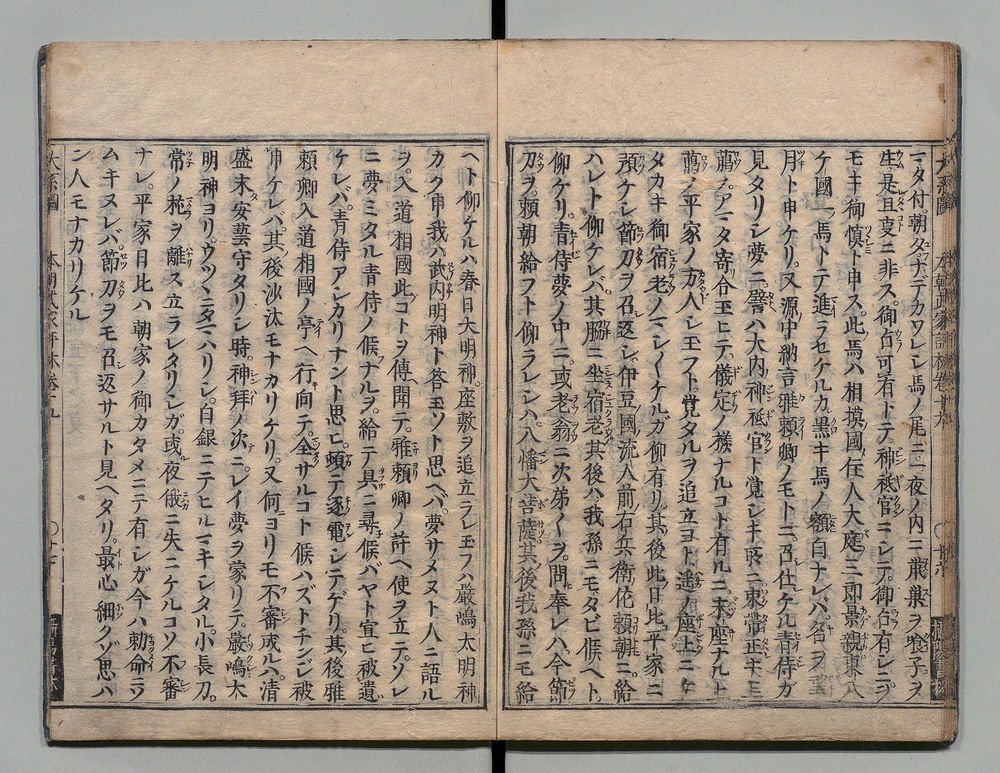 一タ付。朝夕ナテカワレシ馬ノ尾ニ一夜ノ内ニ巣ヲ喰子ヲ
生ム是且変ニ非ス。御百可有トテ神祇官ニシテ。御占有シニヲ
モキ御慎ト申ス。此馬ハ相摸國住人大庭三即景親東八
ケ國一ノ馬トテ進ラセケルカ黒キ馬ノ額白ナレバ名ヲ望
月ト申ケリ。又源中納言雅頼卿ノモトニ召仕ケル青侍ガ
見タリシ夢ニ譬ハ大内神祇官ト覚シキ所ニ束帯正キ
薦ノアマタ寄合玉ヒテ儀定ノ様ナルコト有ルニ末座ナル上
薦ノ平家ノ方人シ玉フト覚タルヲ追立ヨト。遙ノ座上ニケ
タカキ御宿老ノマシイケルガ仰有リ其後此日比平家ニ
預ケシ節刀ヲ召返シ伊豆國流人前右兵衛佐頼朝ニ給
ハレト仰ケレバ。其脇ニ坐宿老其後ハ我孫ニモタビ候ヘト。
仰ケリ。青侍夢ノ中ニ或老翁ニ次第ノイヲ問奉レハ今節
刀ヲ。頼朝給フト仰ラレシハ。八幡大菩薩其後我孫ニモ給
ヘト仰ケルハ春日大明神。座敷ヲ追立ラレ玉フハ嚴嶋太明神
カク申我ハ武内明神ト答玉ソト思ヘバ。夢サメヌト人ニ語ル
ヲ。入道相國此コトヲ傳聞テ。雅頼卿ノ許ヘ使ヲ立テ。ソレ
ニ夢ミタル青侍ノ候ナルヲ。給テ具ニ尋候バヤト宣ヒ被遣
ケレバ。青侍アシカリナント思ヒ。頓テ逐電シテゲリ。其後雅
頼卿入道相國ノ亭ヘ行向テ。全サルコト候ハズトチンじ被
申ケレバ。其後沙汰モナカリケリ。又何ヨリモ不審成ルハ。清
盛未安藝守タリシ時。神拜ノ次ニ。レイ夢ヲ蒙リテ。嚴嶋大
明神ヨリ。ウツヽニタマハリシ。白銀ニテヒルマキシタル小長刀。
常ノ枕ヲ離ス立ラレタリシガ。或夜俄ニ失ニケルコソ不審
ナレ。平家日比ハ朝家ノ御カタメニテ有シガ今ハ勅命ニソ
ムキヌレバ。節刀ヲモ召返サルト見ヘタリ。最心細クゾ思ハ
ン人モナカリケル
大系圖 本朝武家評林巻十九